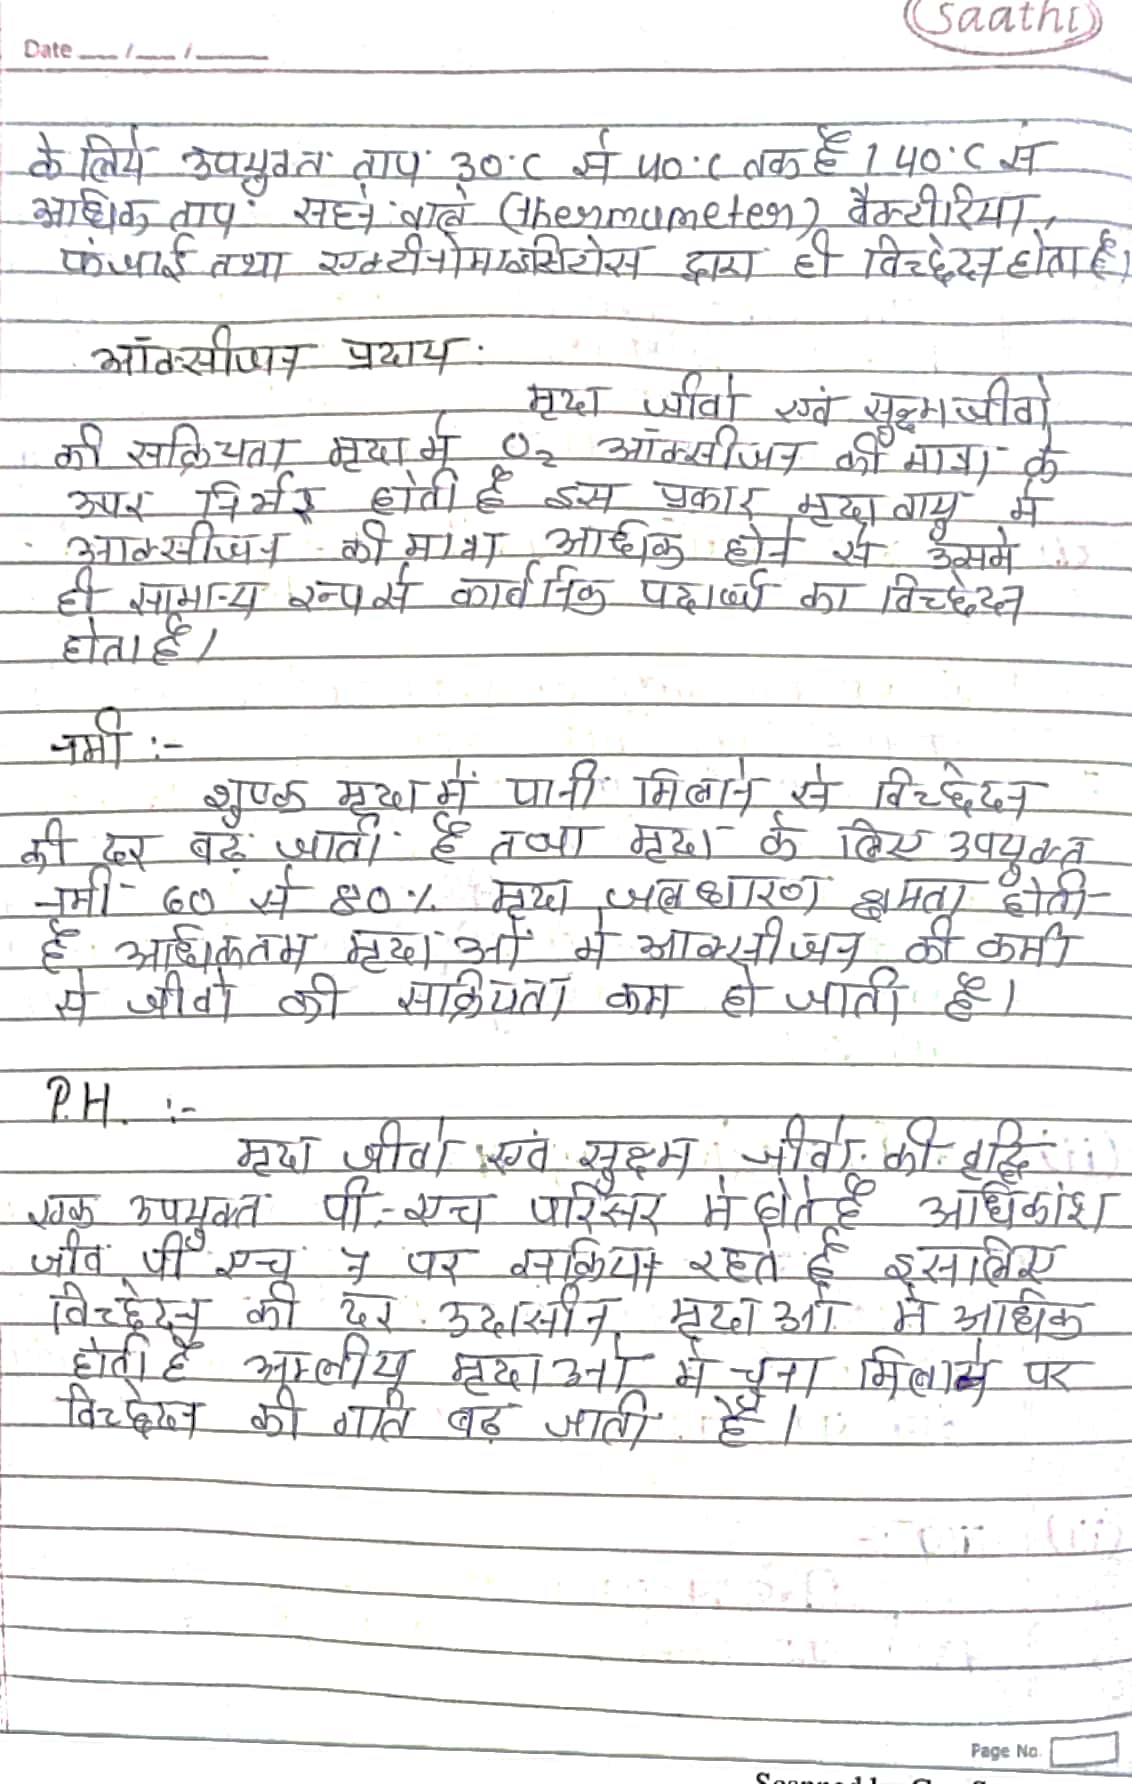 Saathi
Date __/__/____
के लिये उपयुक्त ताप 30°C से 40°C तक है। 40°C से
अधिक ताप सहने वाले (thermumeter) बैक्टीरिया,
फंजाई तथा एक्टीनोमाइसिटोस द्वारा ही विच्छेदन होता है।
ऑक्सीजन प्रदाय
मृदा जीवों एवं सुक्ष्मजीवो
की सक्रियता मृदा में O₂ ऑक्सीजन की मात्रा के
उपर निर्भर होती है इस प्रकार मृदा वायु में
आक्सीजन की मात्रा अधिक होने से उसमे
ही सामान्य रूप से कार्बनिक पदार्थ का विच्छेदन
होता है।
नमी :-
शुष्क मृदा में पानी मिलाने से विच्छेदन
की दर बढ़ जाती है तथा मृदा के लिए उपयुक्त
नमी 60 से 80% मृदा जलधारण क्षमता होती
है अधिकतम मृदाओं मे आक्सीजन की कमी
से जीवो की सक्रियता कम हो जाती है।
P.H. :-
मृदा जीवो एवं सुक्ष्म जीवो की वृद्धि
एक उपयुक्त पी.-एच परिसर मे होते है अधिकांश
जीव पी एच 7 पर सक्रिय रहते है इसलिए
विच्छेदन की दर उदासीन मृदाओ मे अधिक
होती है अम्लीय मृदाओ मे चुना मिलाने पर
विच्छेदन की गति बढ़ जाती है।
Page No.